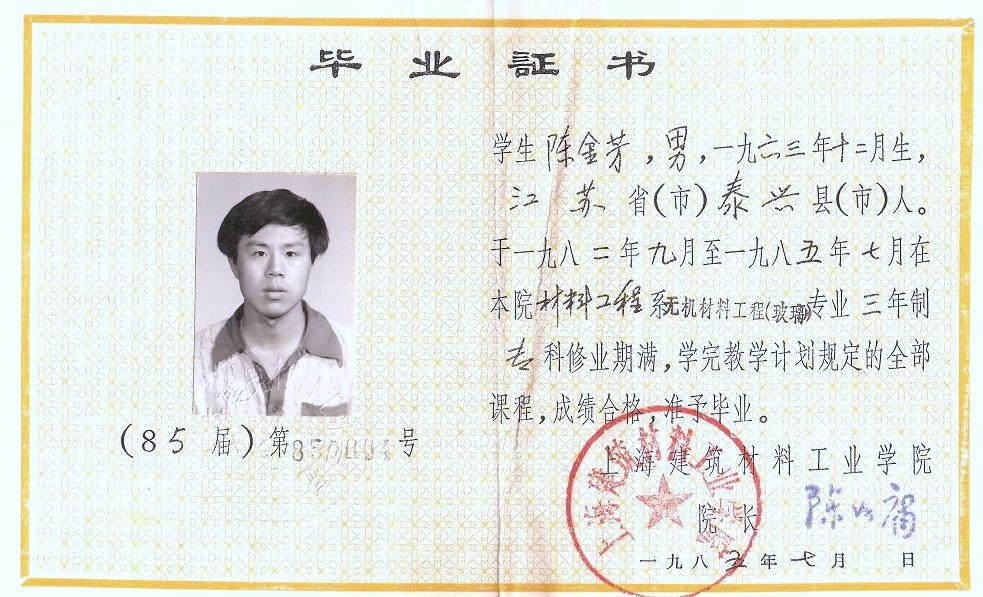 毕业証书
学生陈金芳，男，一九六三年十二月生，
江苏省(市)泰兴县(市)人。
于一九八二年九月至一九八五年七月在
本院材料工程系无机材料工程(玻璃)专业三年制
专科修业期满，学完教学计划规定的全部
课程，成绩合格，准予毕业。
(85届)第号
上海建筑材料工业学院
院长
一九八五年七月 日
上海建筑材料工业学院